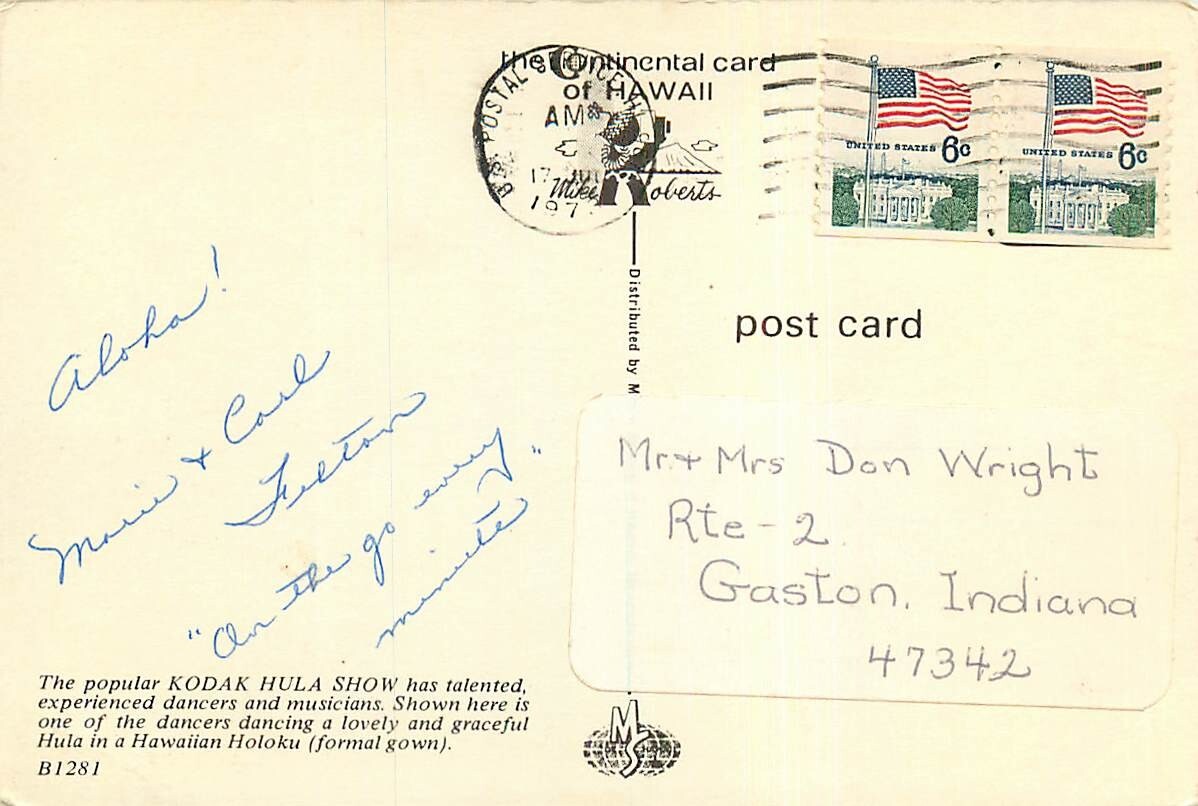 the Continental card
of HAWAII
U.S. POSTAL SERVICE, HI
AM
17 JUL
197
Mike Roberts
UNITED STATES 6c
UNITED STATES 6c
Distributed by M
post card
Aloha!
Marie + Carl
Felton
"On the go every
minute"
Mr. + Mrs Don Wright
Rte - 2.
Gaston, Indiana
47342
The popular KODAK HULA SHOW has talented,
experienced dancers and musicians. Shown here is
one of the dancers dancing a lovely and graceful
Hula in a Hawaiian Holoku (formal gown).
B1281
MS